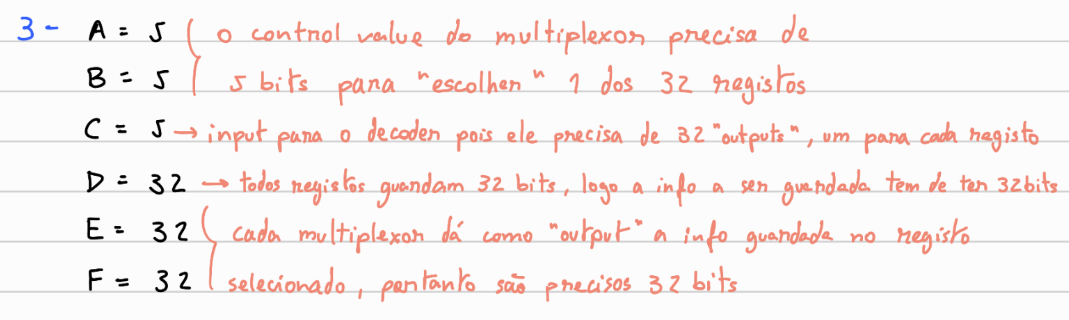 3- A = 5 ( o control value do multiplexor precisa de
B = 5 ( 5 bits para "escolher" 1 dos 32 registos
C = 5 → input para o decoder pois ele precisa de 32 "outputs", um para cada registo
D = 32 → todos registos guardam 32 bits, logo a info a ser guardada tem de ter 32bits
E = 32 ( cada multiplexor dá como "output" a info guardada no registo
F = 32 ( selecionado, portanto são precisos 32 bits